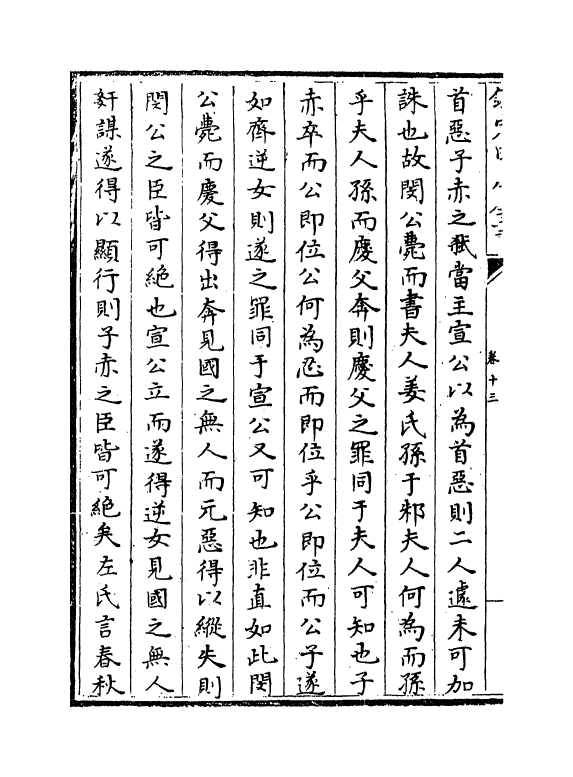 卷十三
首惡子赤之弒當主宣公以為首惡則二人遽未可加
誅也故閔公薨而書夫人姜氏孫于邾夫人何為而孫
乎夫人孫而慶父奔則慶父之罪同于夫人可知也子
赤卒而公即位公何為忍而即位乎公即位而公子遂
如齊逆女則遂之罪同于宣公又可知也非直如此閔
公薨而慶父得出奔見國之無人而元惡得以縱失則
閔公之臣皆可絶也宣公立而遂得逆女見國之無人
姧謀遂得以顯行則子赤之臣皆可絶矣左氏言春秋